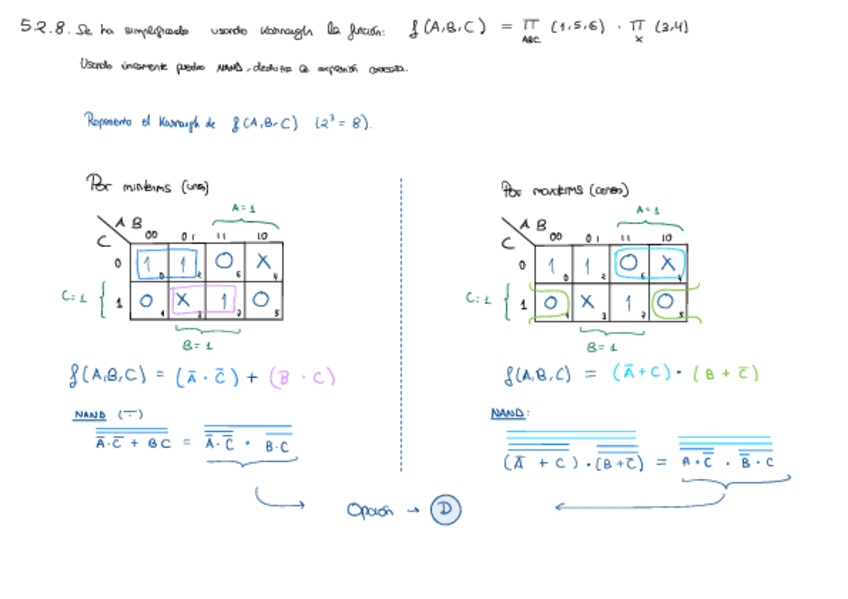 5.2.8. Se ha simplificado usando Karnaugh la función: f(A,B,C) = Π (1,5,6) · Π (3,4)
ABC X
Usando únicamente puertas NAND, deduzca la expresión correcta.
Represento el Karnaugh de f(A,B,C) (2³ = 8).
Por minterms (unos)
A=1
A B
C
00 01 11 10
0 1 0 1 2 0 6 X 4
C=1 { 1 0 1 X 3 1 7 0 5
B=1
f(A,B,C) = (A̅ · C̅) + (B · C)
NAND (¯·)
A̅·C̅ + BC = A̅·C̅ · B·C
Por maxterms (ceros)
A=1
A B
C
00 01 11 10
0 1 0 1 2 0 6 X 4
C=1 { 1 0 1 X 3 1 7 0 5
B=1
f(A,B,C) = (A̅+C) · (B + C̅)
NAND:
(A̅ + C) · (B+C̅) = A·C̅ · B̅·C
Opción → D